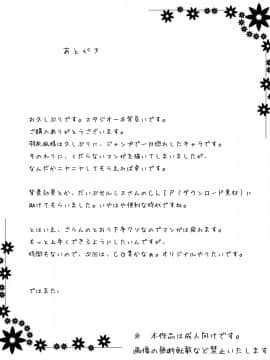 あとがき
お久しぶりです。スタジオ
ご購入ありがとうございます。
は久しぶりに、ジャンプで一目惚れしたキャラです。
そのわりに、くだらないマンガを描いてしまいましたが、
なんだかニヤニヤしてもらえれば幸いです。
背景効果とか、だいぶセルシスさんのCLIP(ダウンロード素材)に
助けてもらいました。いやはや便利な時代ですね。
とはいえ、さらんのとおり下手クソなのでマンガは疲れます。
もっと上手くできるようにしたいんですが、
時間もないので、次回は、CG集かなぁ。オリジナルやりたいです。
ではまた。
※ 本作品は成人向けです。
画像の無断転載など禁止いたします